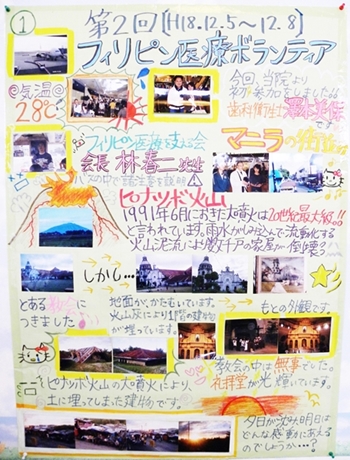 ①
第2回 [H18.12.5〜12.8]
フィリピン医療ボランティア
◎気温◎
28℃
今回、当院より
初参加をしました!!
歯科衛生士
です
フィリピン医療を支える会
会長 林春二先生
バスの中で諸注意を説明
マニラの街並
ピナツボ火山
1991年6月におきた大噴火は20世紀最大級!!
と言われています。雨水がしみ込んで流動化する
火山泥流により数千戸の家屋が倒壊?
しかし…
とある教会に
つきました
地面が、かたむいています。
火山灰により1階の建物
が埋っています。
もとの外観です。
教会の中は無事でした。
礼拝堂が光り輝いています。
ピナツボ火山の大噴火により、
土に埋ってしまった建物です。
夕日が沈み明日は
どんな感動にあえる
のでしょうか…?